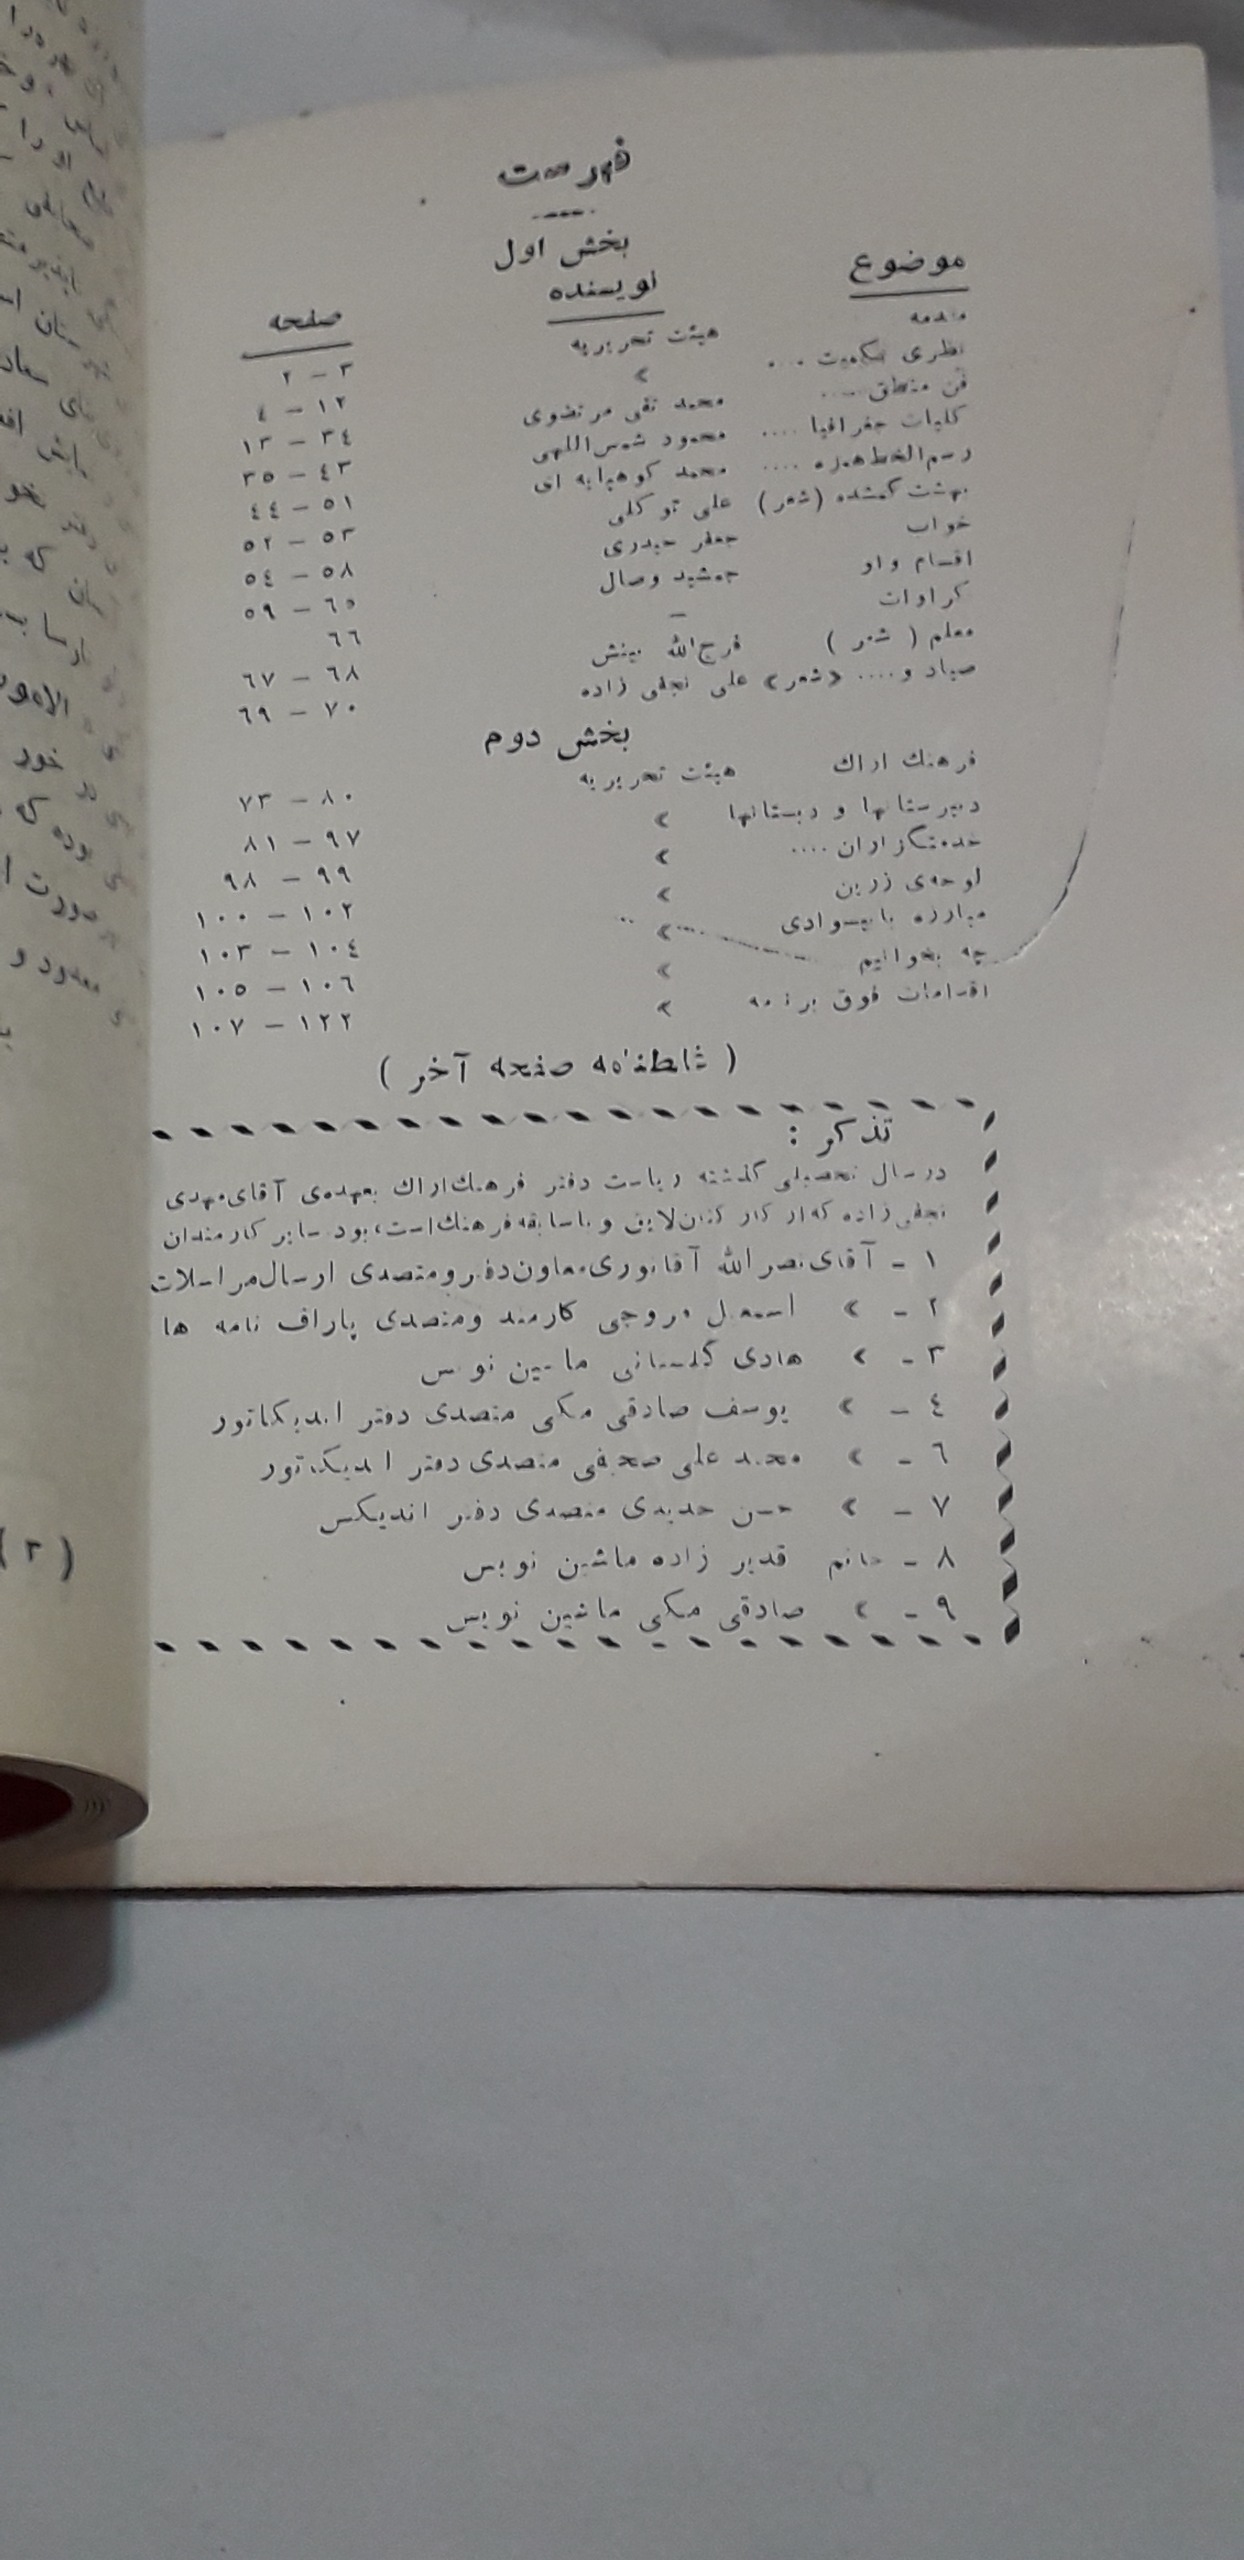 فهرست
بخش اول
موضوع نویسنده صفحه
مقدمه هیئت تحریریه ۳ – ۲
نظری بکمیت .... » ۱۲ – ٤
فن منطق .... محمد تقی مرتضوی ۳٤ – ۱۳
کلیات جغرافیا .... محمود شمس‌اللهی ٤۳ – ۳٥
رسم‌الخط همزه .... محمد کوهپایه ای ٥۱ – ٤٤
بهشت گمشده (شعر) علی توکلی ٥۳ – ٥۲
خواب جعفر حیدری ٥۸ – ٥٤
اقسام واو جمشید وصال ٦٥ – ٥۹
کراوات – ٦٦
معلم ( شعر ) فرج‌الله بینش ٦۸ – ٦۷
صیاد و .... «شعر» علی نجفی زاده ۷۰ – ٦۹
بخش دوم
فرهنك اراك هیئت تحریریه ۸۰ – ۷۳
دبیرستانها و دبستانها » ۹۷ – ۸۱
خدمتگزاران .... » ۹۹ – ۹۸
لوحه‌ی زرین » ۱۰۲ – ۱۰۰
مبارزه بابیسوادی » ۱۰٤ – ۱۰۳
چه بخوانیم » ۱۰٦ – ۱۰٥
اقدامات فوق برنامه » ۱۲۲ – ۱۰۷
( غلطنامه صفحه آخر )
تذکر :
در سال تحصیلی گذشته ریاست دفتر فرهنك‌اراك بعهده‌ی آقای‌مهدی
نجفی‌زاده که‌از کار کنان‌لایق و باسابقه‌فرهنك‌است،بود سایر کارمندان
۱ – آقای‌نصرالله آقانوری‌معاون‌دفترومتصدی ارسال‌مراسلات
۲ – » اسمعیل مروجی کارمند ومتصدی پاراف نامه ها
۳ – » هادی گلستانی ماشین نویس
٤ – » یوسف صادقی مکی متصدی دفتر اندیکاتور
٦ – » محمد علی صحفی متصدی دفتر اندیکاتور
۷ – » حسن حدیدی متصدی دفتر اندیکس
۸ – خانم قدیر زاده ماشین نویس
۹ – » صادقی مکی ماشین نویس
( ۲ )